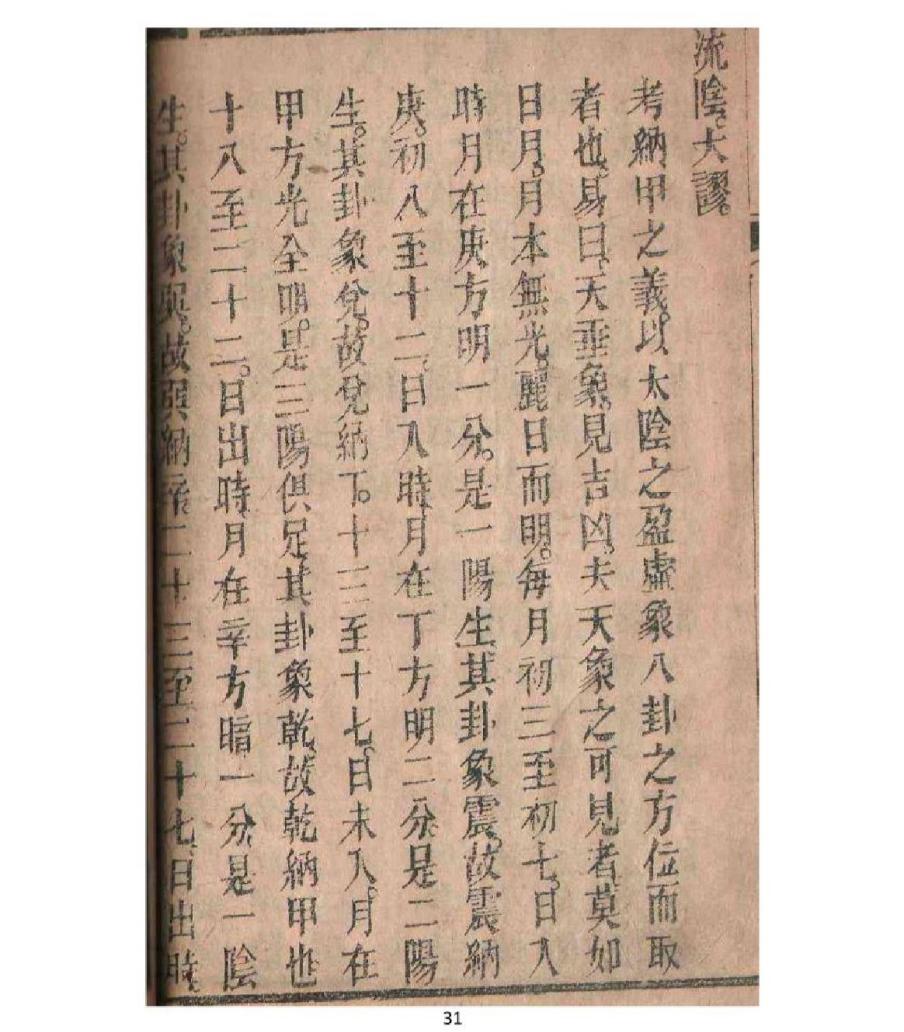 流陰。大謬。
考納甲之義。以太陰之盈虛象八卦之方位而取
者也。易曰、天垂象。見吉凶。夫天象之可見者莫如
日月。月本無光。麗日而明。每月初三至初七。日入
時月在庚方明一分。是一陽生。其卦象震。故震納
庚。初八至十二。日入時。月在丁方明二分。是二陽
生。其卦象兌。故兌納丁。十三至十七。日未入。月在
甲方光全明。是三陽俱足其卦象乾。故乾納甲也
十八至二十二。日出時。月在辛方暗一分。是一陰
生。其卦象巽。故巽納辛。二十三至二十七、日出時。
31